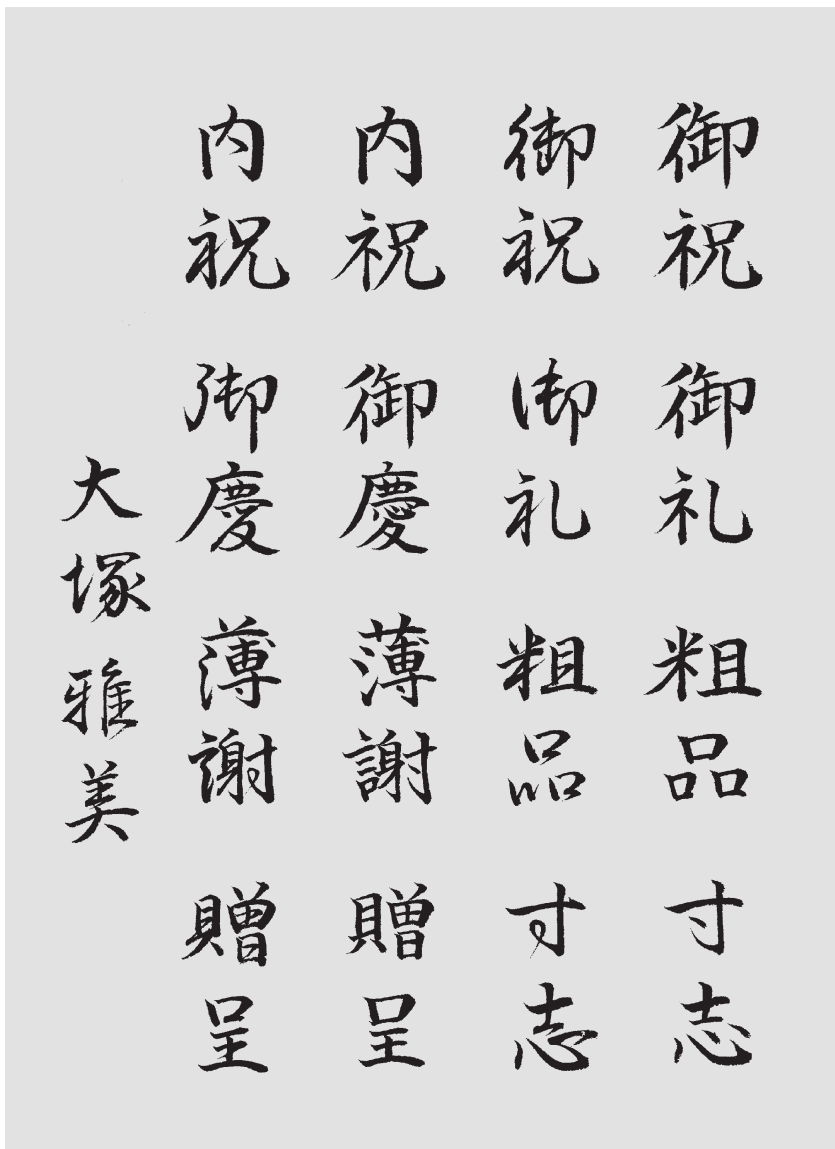 御祝 御礼 粗品 寸志
御祝 御礼 粗品 寸志
内祝 御慶 薄謝 贈呈
内祝 御慶 薄謝 贈呈
大塚雅美